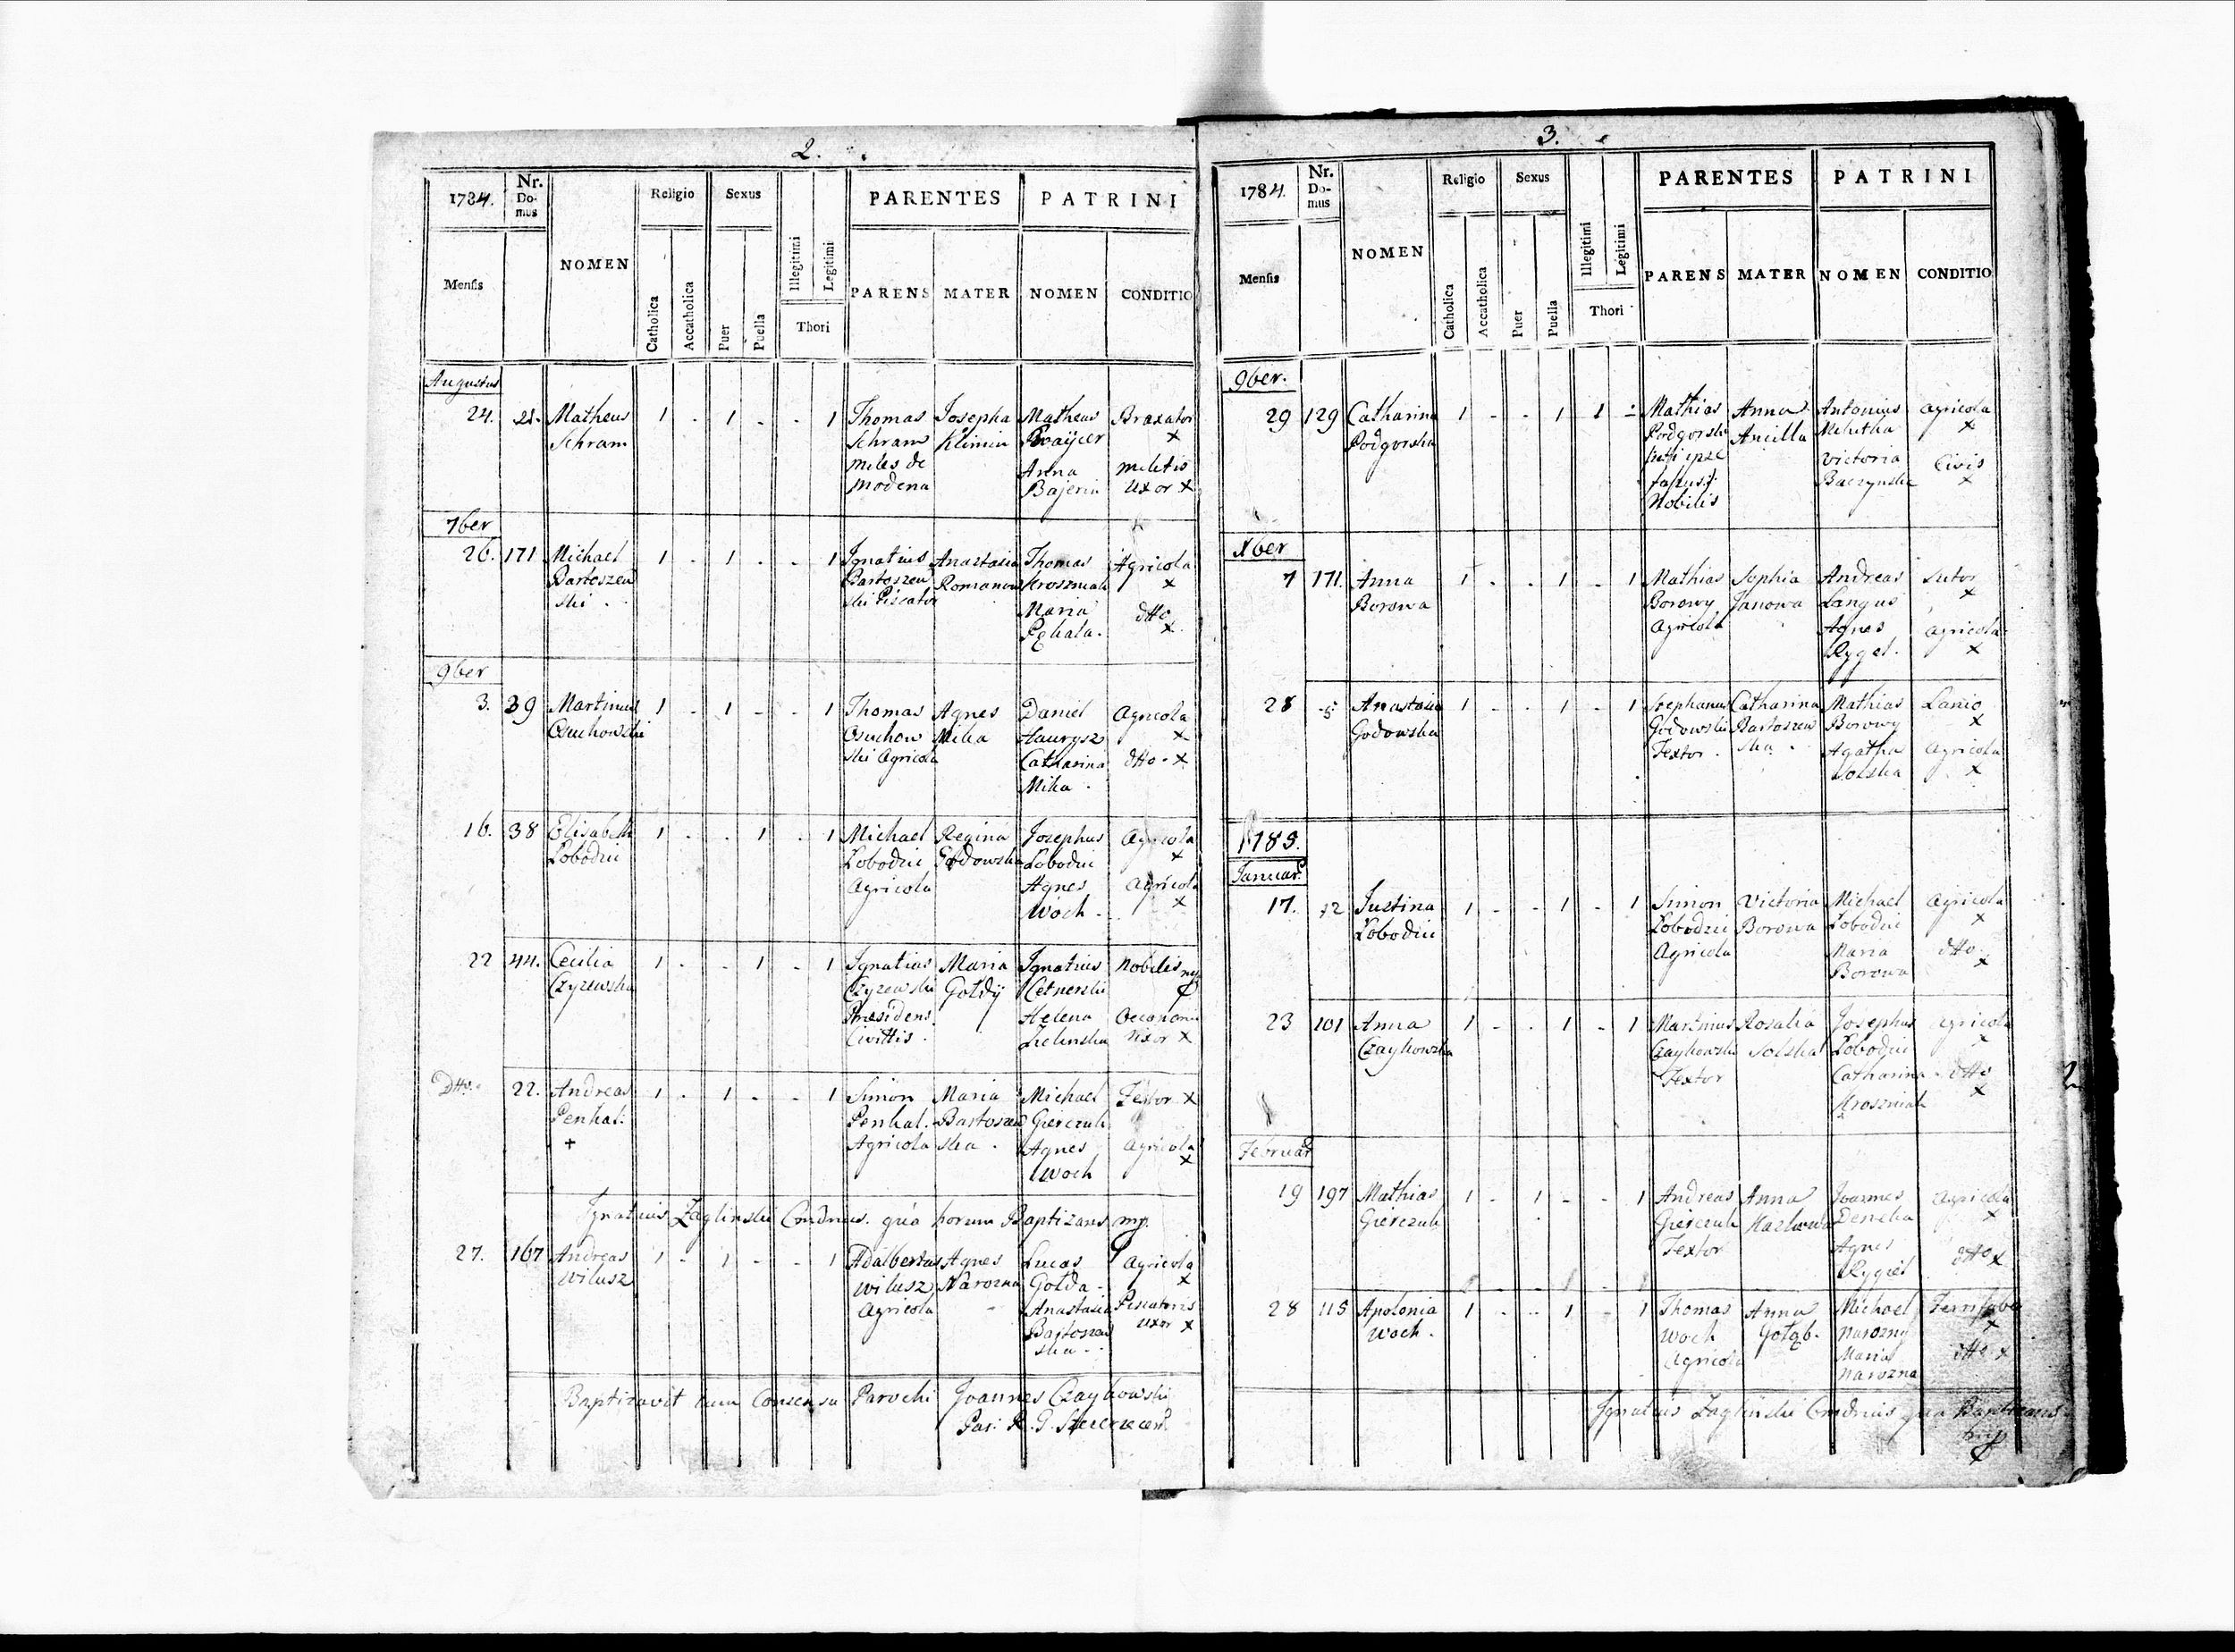 2.
1784.
Nr. Domus
NOMEN
Religio
Sexus
PARENTES
PATRINI
Mensis
Catholica
Accatholica
Puer
Puella
Illegitimi
Legitimi
Thori
PARENS
MATER
NOMEN
CONDITIO
Augustus
24. 21. Matheus 1 . 1 . . 1 Thomas Josepha Matheus Braxator
Schram Schram Klimia x
miles de Anna militis
modena Bajerin uxor x
7ber
26. 171 Michael 1 . 1 . . 1 Ignatius Anastasia Thomas Agricola
Bartoszew Bartoszew Romanow Kroszniak x
ski . ski Piscator Maria dtto
Pękala. x
9ber
3. 39 Martinus 1 . 1 . . 1 Thomas Agnes Daniel Agricola
Osuchowski Osuchow Mika Hawrysz x
ski Agricola Catharina dtto . x
Mika .
16. 38 Elisabeth 1 . . 1 . 1 Michael Regina Josephus Agricola
Łobodzic Łobodzic Godowska Łobodzic x
Agricola Agnes Agricola
Woch . x
22 44. Cecilia 1 . . 1 . 1 Ignatius Maria Ignatius Nobilis mp
Czyzewska Czyzewski Gołdy Cetnerski
Praesidens Helena Oeconomi
Civittis . Zielinska Uxor x
Dtto. 22. Andreas 1 . 1 . . 1 Simon Maria Michael Textor x
Penkal. Penkal. Bartoszew Gierczak
+ Agricola ska . Agnes Agricola
Woch x
Ignatius Zaglinski Cmdrius. qua horum Baptizans mp.
27. 167 Andreas 1 . 1 . . 1 Adalbertus Agnes Lucas Agricola
Wilusz Wilusz Narozna Gołda . x
Agricola Anastasia Piscatoris
Bartoszew uxor x
ska . .
Baptizavit cum Consensu Parochi Joannes Czaykowski
3.
1784.
Nr. Domus
NOMEN
Religio
Sexus
PARENTES
PATRINI
Mensis
Catholica
Accatholica
Puer
Puella
Illegitimi
Legitimi
Thori
PARENS
MATER
NOMEN
CONDITIO
9ber.
29 129 Catharina 1 . . 1 1 - Mathias Anna Antonius Agricola
Podgorska Podgorski Ancilla x
ipse Victoria Civis
Baczynska x
Nobilis
Xber
7 171. Anna 1 . . 1 . 1 Mathias Sophia Andreas Sutor
Borowa Borowy Janowa Langus x
Agricola Agnes Agricola
Rygel . x
28 5 Anastasia 1 . . 1 . 1 Stephanus Catharina Mathias Lanio
Godowska Godowski Bartoszew Borowy x
Textor . ska . Agatha Agricola
Solska x
1785.
Januar.
17. 12 Justina 1 . . 1 . 1 Simon Victoria Michael Agricola
Łobodzic Łobodzic Borowa Łobodzic x
Agricola Maria dtto
Borowa x
23 101 Anna 1 . . 1 . 1 Martinus Rosalia Josephus Agricola
Czaykowska Czaykowski Solska Łobodzic x
Textor Catharina dtto
Kroszniak x
Februar
19 197 Mathias 1 . 1 . . 1 Andreas Anna Joannes Agricola
Gierczak Gierczak Deneka x
Textor Agnes dtto x
Rygiel
28 115 Apolonia 1 . . 1 . 1 Thomas Anna Michael Ferrifaber
Woch . Woch Gołąb . Narozny x
Agricola Maria dtto x
Narozna
Ignatius Zaglinski Cmdrius qua Baptizans
mp